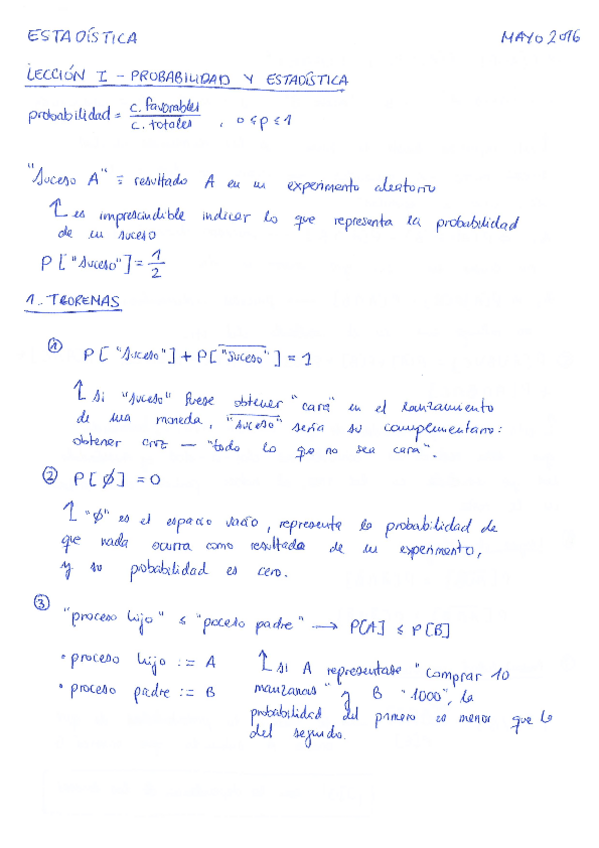 ESTADÍSTICA
MAYO 2016
LECCIÓN I - PROBABILIDAD Y ESTADÍSTICA
probabilidad = c. favorables / c. totales , 0 ≤ p ≤ 1
"Suceso A" ≡ resultado A en un experimento aleatorio
↑ es imprescindible indicar lo que representa la probabilidad
de un suceso
P ["suceso"] = 1/2
1. TEOREMAS
① P ["suceso"] + P["suceso"] = 1
↑ si "suceso" fuese obtener "cara" en el lanzamiento
de una moneda, "suceso" sería su complementario:
obtener cruz — "todo lo que no sea cara".
② P[∅] = 0
↑ "∅" es el espacio vacío, representa la probabilidad de
que nada ocurra como resultado de un experimento,
y su probabilidad es cero.
③ "proceso hijo" ≤ "poceso padre" → P[A] ≤ P[B]
• proceso hijo := A
• proceso padre := B
↑ si A representase "comprar 10
manzanas" y B "1000", la
probabilidad del primero es menor que la
del segundo.